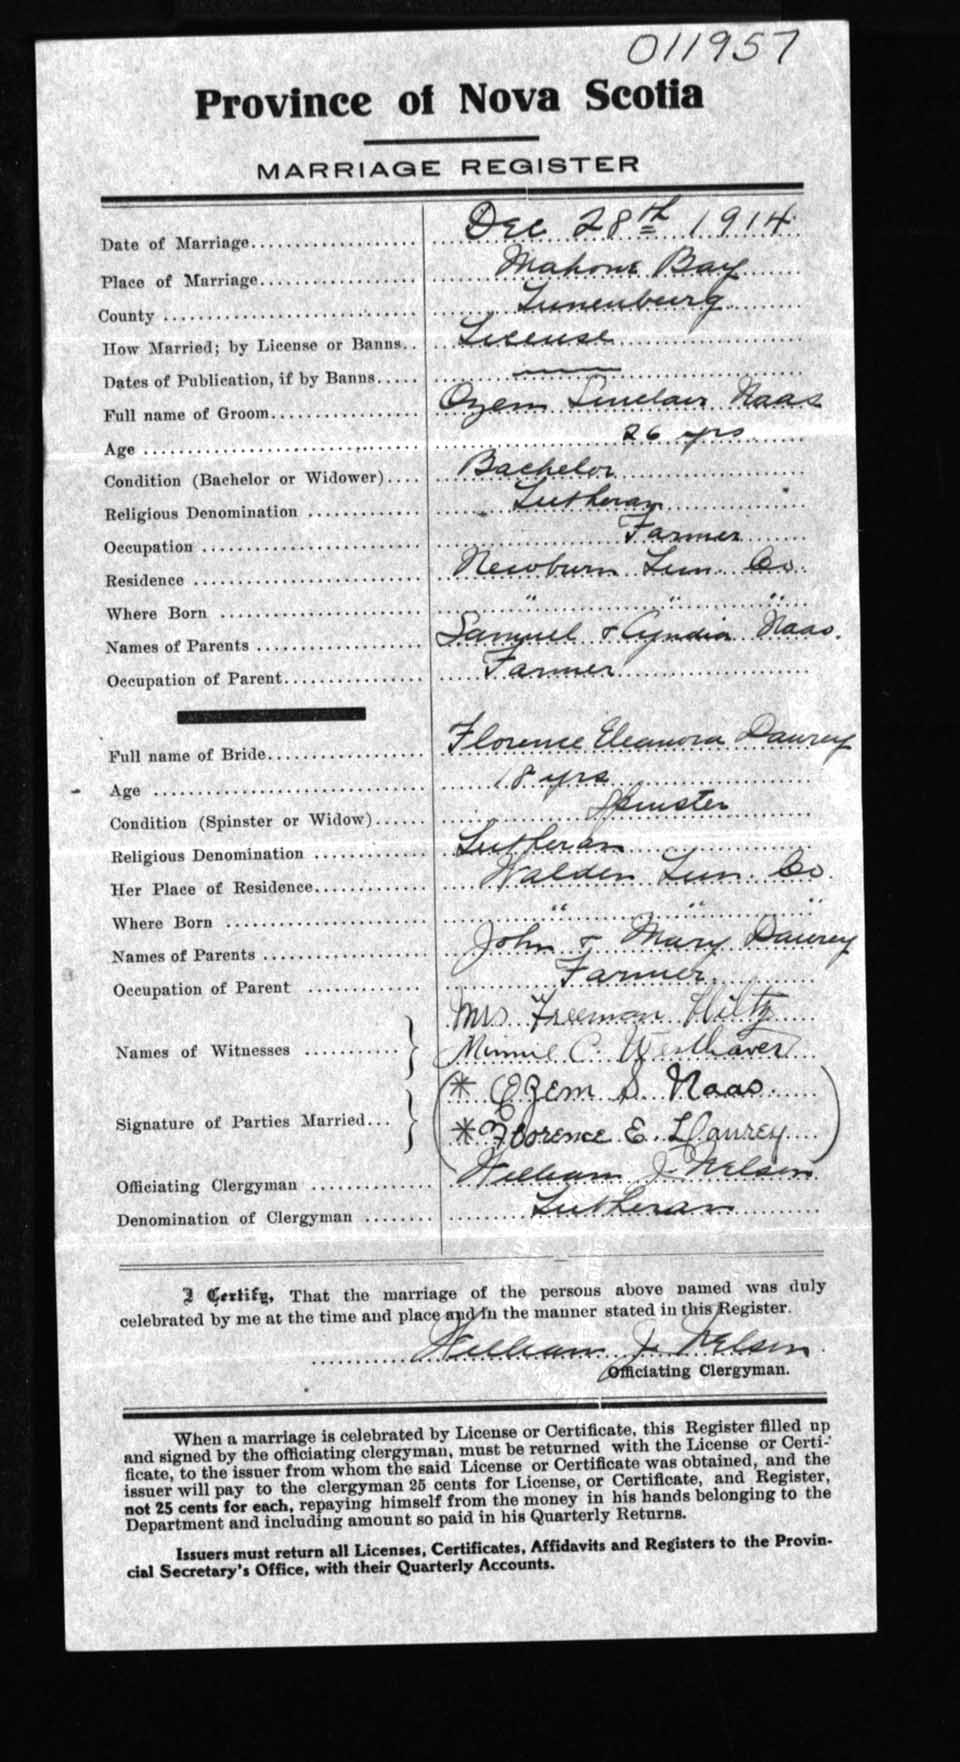 011957
Province of Nova Scotia
MARRIAGE REGISTER
Date of Marriage.................... Dec 28th 1914
Place of Marriage.................. Mahone Bay
County ............................ Lunenburg
How Married; by License or Banns.. License
Dates of Publication, if by Banns..... ——
Full name of Groom................. Ozem Sinclair Naas
Age ............................... 26 yrs
Condition (Bachelor or Widower).... Bachelor
Religious Denomination ............ Lutheran
Occupation ........................ Farmer
Residence ......................... Newburn Lun. Co.
Where Born ........................ " " "
Names of Parents .................. Samuel & Naas.
Occupation of Parent............... Farmer
Full name of Bride.................. Florence Eleanora Daurey
Age ............................... 18 yrs
Condition (Spinster or Widow)...... Spinster
Religious Denomination ............ Lutheran
Her Place of Residence............. Walden Lun. Co.
Where Born ........................ " " "
Names of Parents .................. John & Mary Daurey
Occupation of Parent .............. Farmer
Mrs Freeman Hiltz
Names of Witnesses ........... } Minnie C. Westhaver
(* Ozem S. Naas )
Signature of Parties Married... } (* Florence E. Daurey )
Officiating Clergyman .............. William J. Nelson
Denomination of Clergyman ........ Lutheran
I Certify, That the marriage of the persons above named was duly
celebrated by me at the time and place and in the manner stated in this Register.
William J. Nelson
Officiating Clergyman.
When a marriage is celebrated by License or Certificate, this Register filled up
and signed by the officiating clergyman, must be returned with the License or Certi-
ficate, to the issuer from whom the said License or Certificate was obtained, and the
issuer will pay to the clergyman 25 cents for License, or Certificate, and Register,
not 25 cents for each, repaying himself from the money in his hands belonging to the
Department and including amount so paid in his Quarterly Returns.
Issuers must return all Licenses, Certificates, Affidavits and Registers to the Provin-
cial Secretary's Office, with their Quarterly Accounts.